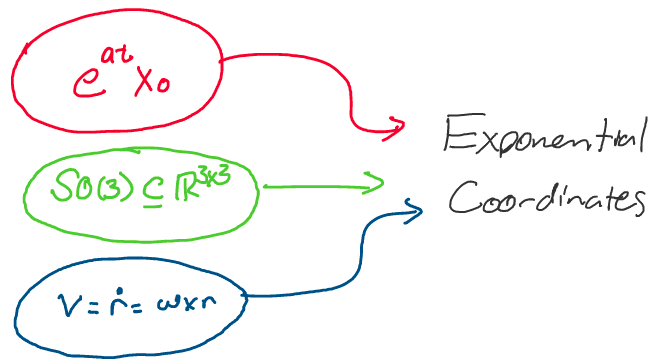 e^{at} x₀
SO(3) ⊆ ℝ^{3x3}
V = ṙ = ω×r
Exponential
Coordinates